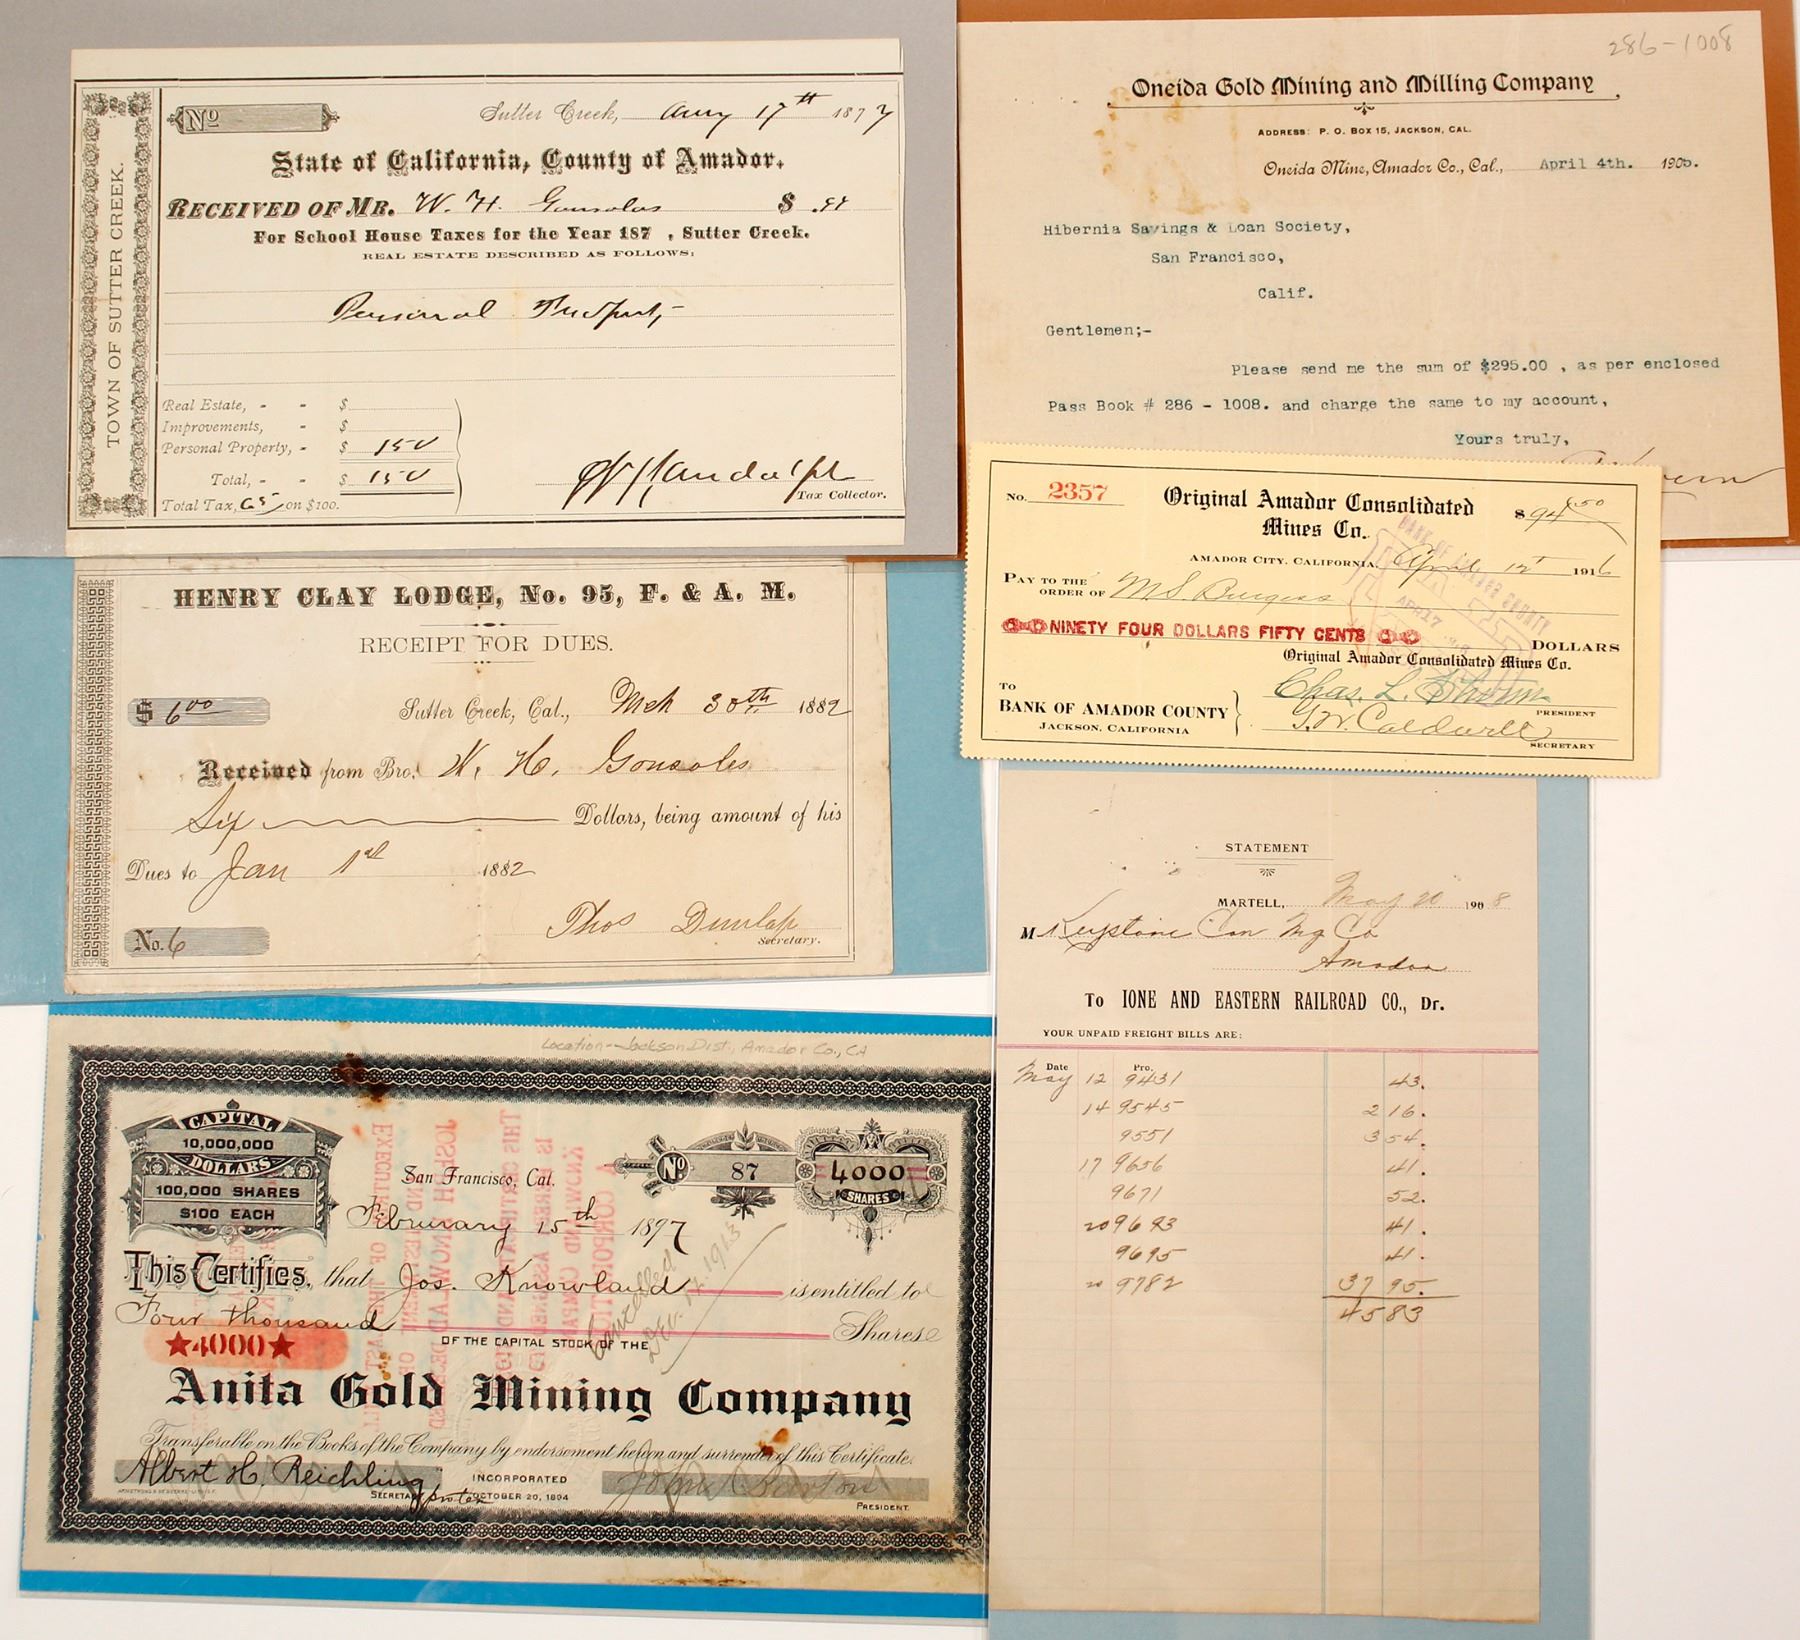 No
Sutter Creek, Aug 17th 1877
State of California, County of Amador.
RECEIVED OF MR. W. H. Gonsolas $
For School House Taxes for the Year 187 , Sutter Creek.
REAL ESTATE DESCRIBED AS FOLLOWS:
Personal Property
Real Estate, - - $
Improvements, - $
Personal Property, - $ 150
Total, - - $ 150
Total Tax, 65 on $100.
Tax Collector.
TOWN OF SUTTER CREEK.
286-1008
Oneida Gold Mining and Milling Company
ADDRESS: P. O. BOX 15, JACKSON, CAL.
Oneida Mine, Amador Co., Cal., April 4th. 1905.
Hibernia Savings & Loan Society,
San Francisco,
Calif.
Gentlemen;-
Please send me the sum of $295.00 , as per enclosed
Pass Book # 286 - 1008. and charge the same to my account,
Yours truly,
No. 2357
Original Amador Consolidated
Mines Co.
$94.50
AMADOR CITY, CALIFORNIA, April 12th 1916
PAY TO THE
ORDER OF M S. Burgess
NINETY FOUR DOLLARS FIFTY CENTS
DOLLARS
Original Amador Consolidated Mines Co.
TO
BANK OF AMADOR COUNTY
JACKSON, CALIFORNIA
Chas. L.
PRESIDENT
Caldwell
SECRETARY
HENRY CLAY LODGE, No. 95, F. & A. M.
RECEIPT FOR DUES.
$ 6.00
Sutter Creek, Cal., Mch 30th 1882
Received from Bro. W. H. Gonsoles
Six Dollars, being amount of his
Dues to Jan 1st 1882
Thos Dunlap
No. 6
Secretary.
STATEMENT
MARTELL, May 20 1908
M Keystone Con Mg Co
Amador
To IONE AND EASTERN RAILROAD CO., Dr.
YOUR UNPAID FREIGHT BILLS ARE:
Date Pro.
May 12 9431 43.
14 9545 2 16.
9551 3 54.
17 9656 41.
9671 52.
20 9693 41.
9695 41.
20 9782 37 95.
45 83
Location - Jackson Dist., Amador Co., CA
CAPITAL
10,000,000
DOLLARS
100,000 SHARES
$100 EACH
San Francisco, Cal.
No 87
4000
SHARES
February 15th 1897
This Certifies, that Jos. Knowland is entitled to
Four thousand Shares
★4000★
OF THE CAPITAL STOCK OF THE
Cancelled
Anita Gold Mining Company
Transferable on the Books of the Company by endorsement hereon and surrender of this Certificate.
Albert H. Reichling
INCORPORATED
OCTOBER 20, 1894
SECRETARY
PRESIDENT.